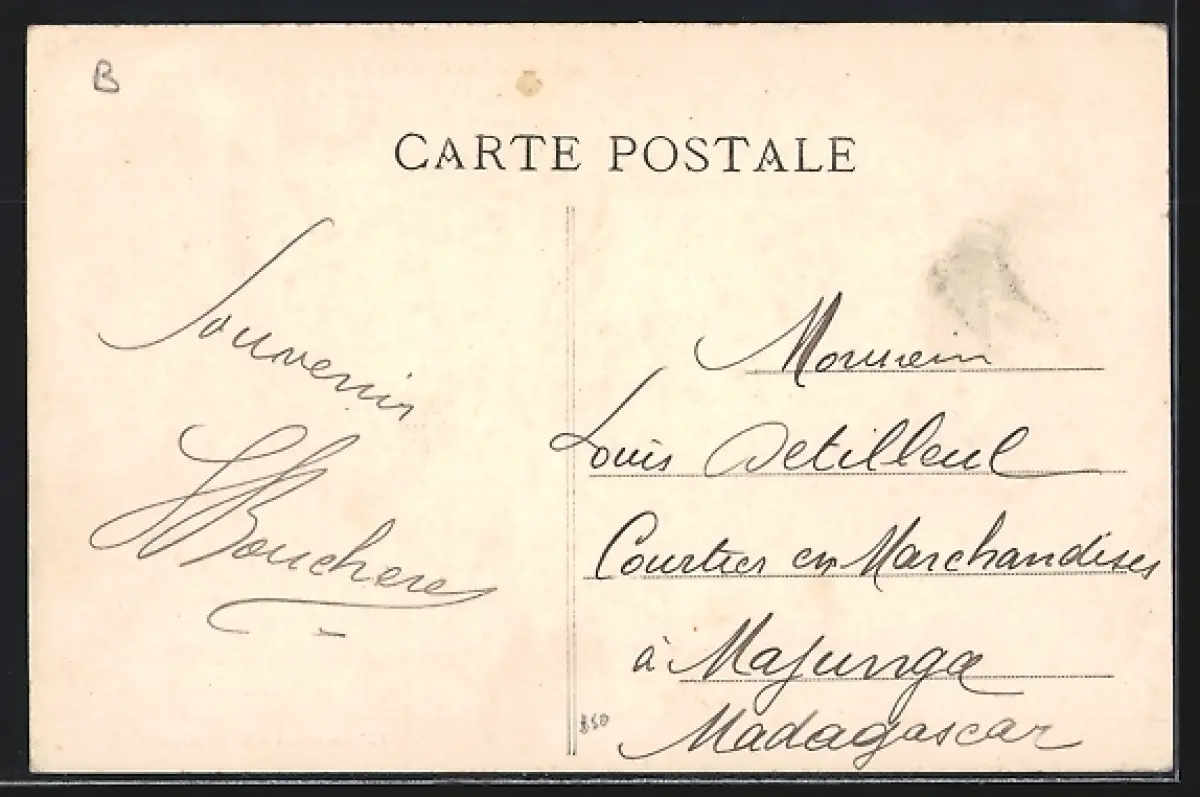 B
CARTE POSTALE
Souvenir
Monsieur
Louis Detilleul
Courtier en Marchandises
à Majunga
Madagascar
850